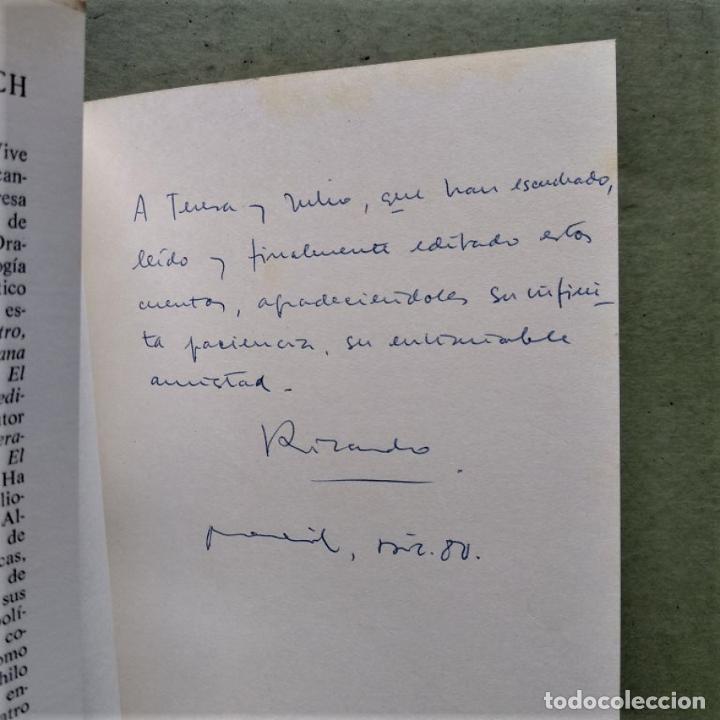 CH
Vive
can-
resa
de
Dra-
logía
tico
es-
tro,
ana
El
edi-
utor
era-
El
Ha
lio-
Al-
de
cas,
de
sus
polí-
co-
omo
hilo
en-
atro
A Teresa y Julio, que han escuchado,
leído y finalmente editado estos
cuentos, agradeciéndoles su infini-
ta paciencia, su entrañable
amistad.
Ricardo
Madrid, Dic. 80.
todocoleccion